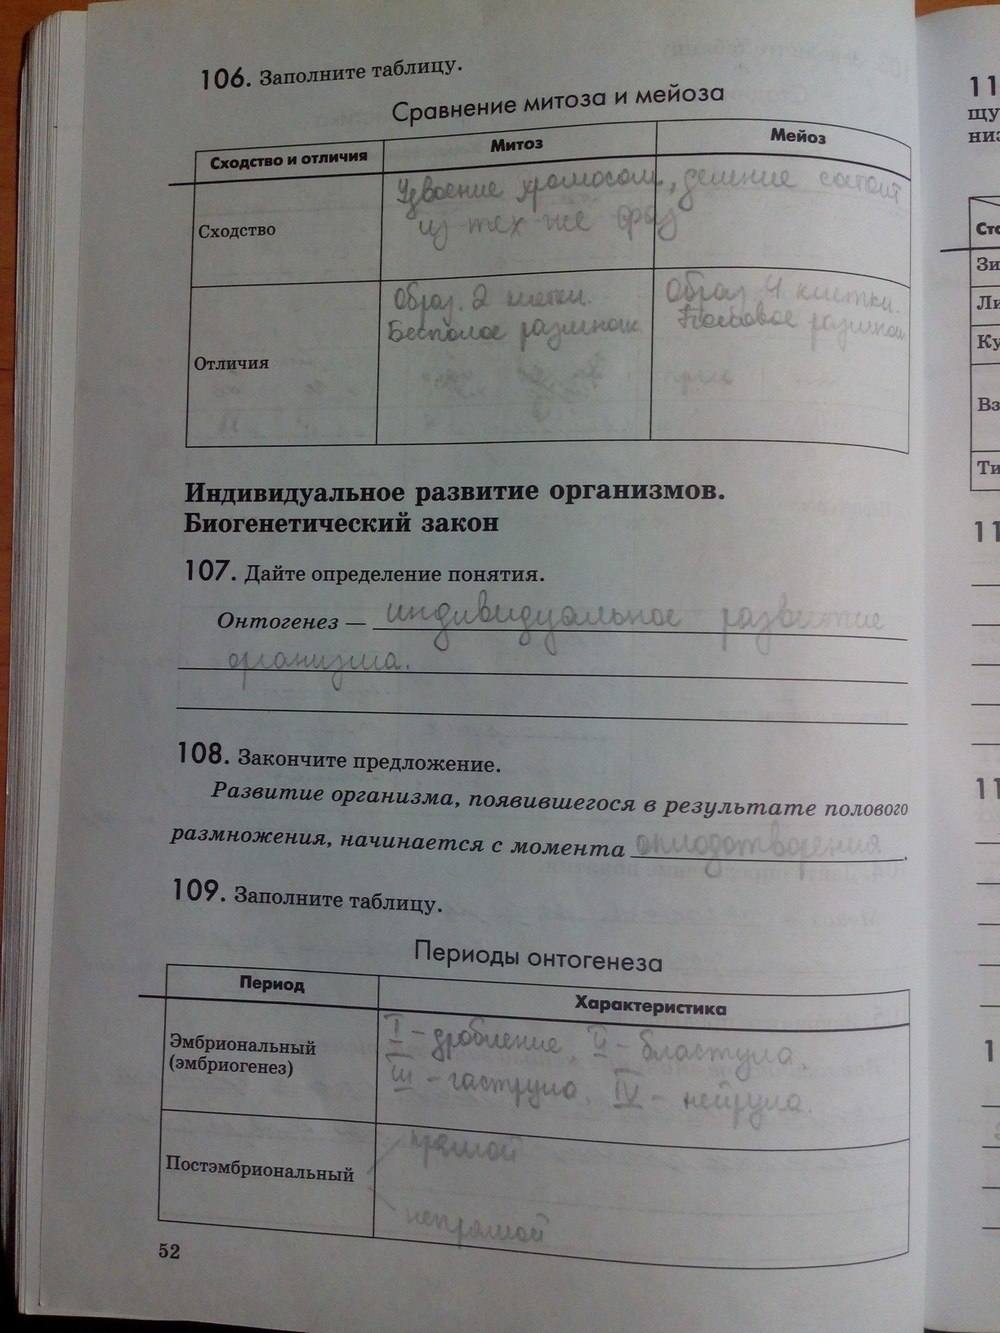 106. Заполните таблицу.
Сравнение митоза и мейоза
Сходство и отличия Митоз Мейоз
Сходство
Удвоение хромосом, деление состоит
из тех же фаз
Отличия
Образ. 2 клетки.
Бесполое размнож.
Образ. 4 клетки.
Половое размнож
Индивидуальное развитие организмов.
Биогенетический закон
107. Дайте определение понятия.
Онтогенез — индивидуальное развитие
организма.
108. Закончите предложение.
Развитие организма, появившегося в результате полового
размножения, начинается с момента оплодотворения.
109. Заполните таблицу.
Периоды онтогенеза
Период Характеристика
Эмбриональный
(эмбриогенез)
I – дробление, II – бластула,
III – гаструла, IV – нейрула.
Постэмбриональный
прямой
непрямой
52
11
щу
низ
Сто
Зи
Ли
Ку
Вз
Ти
11
11
1